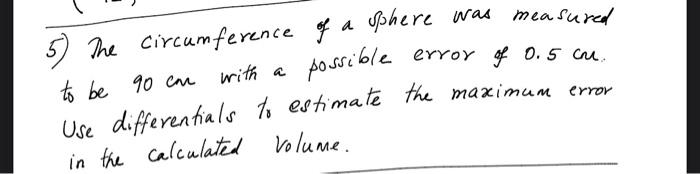 5) The circumference of a sphere was measured
to be 90 cm with a possible error of 0.5 cm.
Use differentials to estimate the maximum error
in the calculated volume.